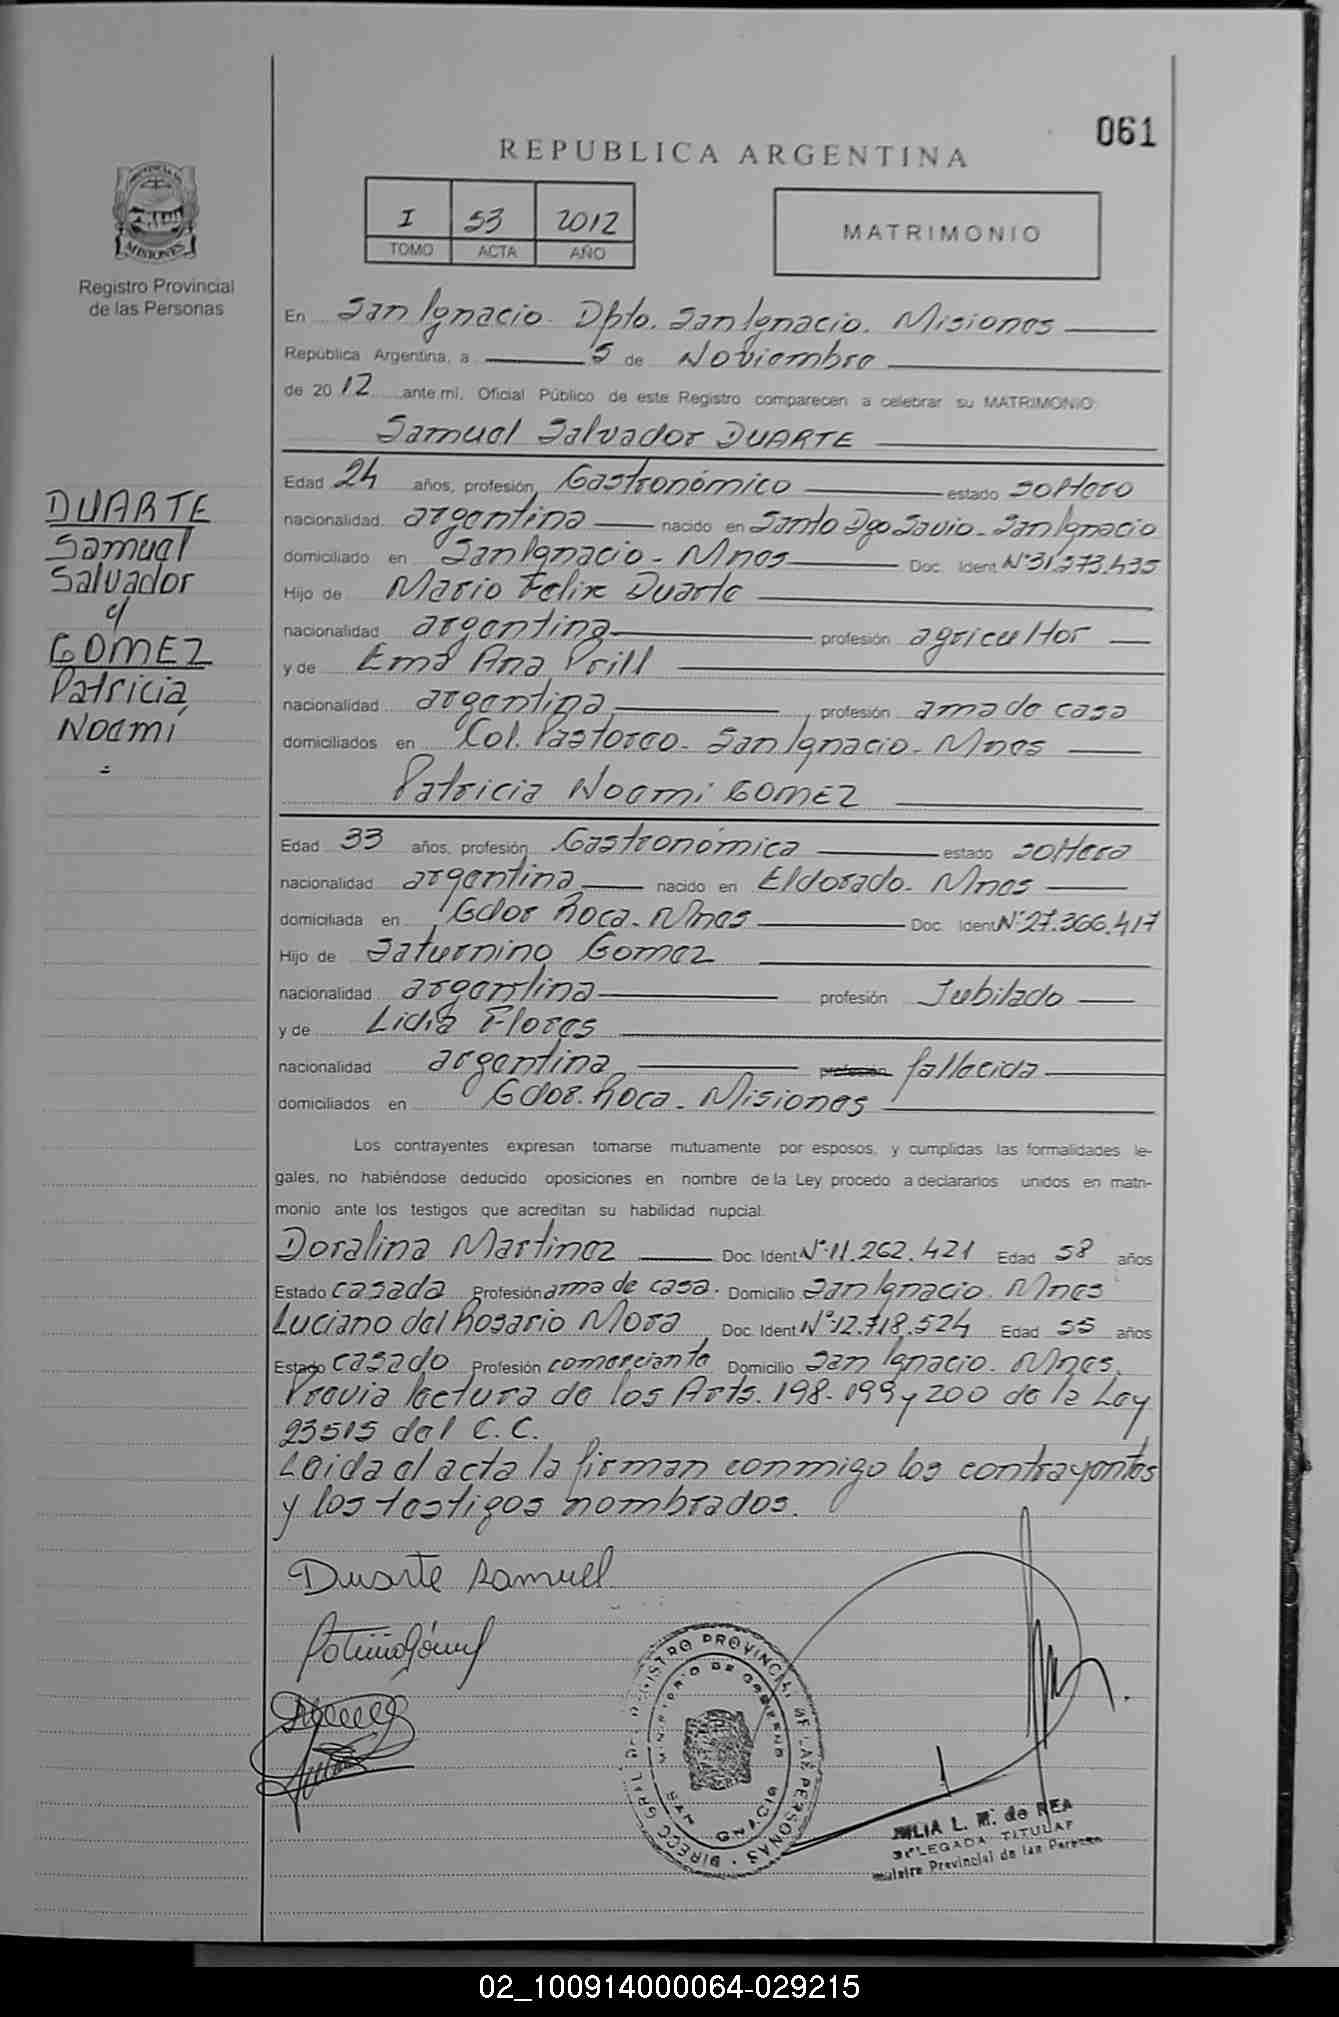 061
REPUBLICA ARGENTINA
PROVINCIA DE
MISIONES
Registro Provincial
de las Personas
I 53 2012
TOMO ACTA AÑO
MATRIMONIO
En San Ignacio. Dpto. San Ignacio. Misiones
República Argentina, a 5 de Noviembre
de 2012 ante mi, Oficial Público de este Registro comparecen a celebrar su MATRIMONIO:
Samuel Salvador DUARTE
DUARTE
Samuel
Salvador
c/
GOMEZ
Patricia
Noemí
Edad 24 años, profesión Gastronómico estado soltero
nacionalidad argentina nacido en Santo Dgo Savio - San Ignacio
domiciliado en San Ignacio - Mnes Doc. Ident Nº 31.273.435
Hijo de Mario Felix Duarte
nacionalidad argentina profesión agricultor
y de Ema Ana Prill
nacionalidad argentina profesión ama de casa
domiciliados en Col. Pastoreo - San Ignacio - Mnes
Patricia Noemi GOMEZ
Edad 33 años, profesión Gastronómica estado soltera
nacionalidad argentina nacido en Eldorado - Mnes
domiciliada en Gdor Roca - Mnes Doc. Ident Nº 27.366.417
Hijo de Saturnino Gomez
nacionalidad argentina profesión Jubilado
y de Lidia Flores
nacionalidad argentina profesión fallecida
domiciliados en Gdor. Roca - Misiones
Los contrayentes expresan tomarse mutuamente por esposos, y cumplidas las formalidades le-
gales, no habiéndose deducido oposiciones en nombre de la Ley procedo a declararlos unidos en matri-
monio ante los testigos que acreditan su habilidad nupcial.
Doralina Martinez Doc. Ident Nº 11.262.421 Edad 58 años
Estado casada Profesión ama de casa. Domicilio San Ignacio. Mnes
Luciano del Rosario Mora Doc. Ident Nº 12.718.524 Edad 55 años
Estado casado Profesión comerciante Domicilio San Ignacio. Mnes.
Previa lectura de los Arts. 198-199 y 200 de la Ley
23515 del C.C.
Leida el acta la firman conmigo los contrayentes
y los testigos nombrados.
Duarte Samuel
DIRECC GRAL DEL REGISTRO PROVINCIAL DE LAS PERSONAS
MINISTERIO DE GOBIERNO
SAN IGNACIO
JULIA L. M. de REA
DELEGADA TITULAR
Provincial de las Personas
02_100914000064-029215